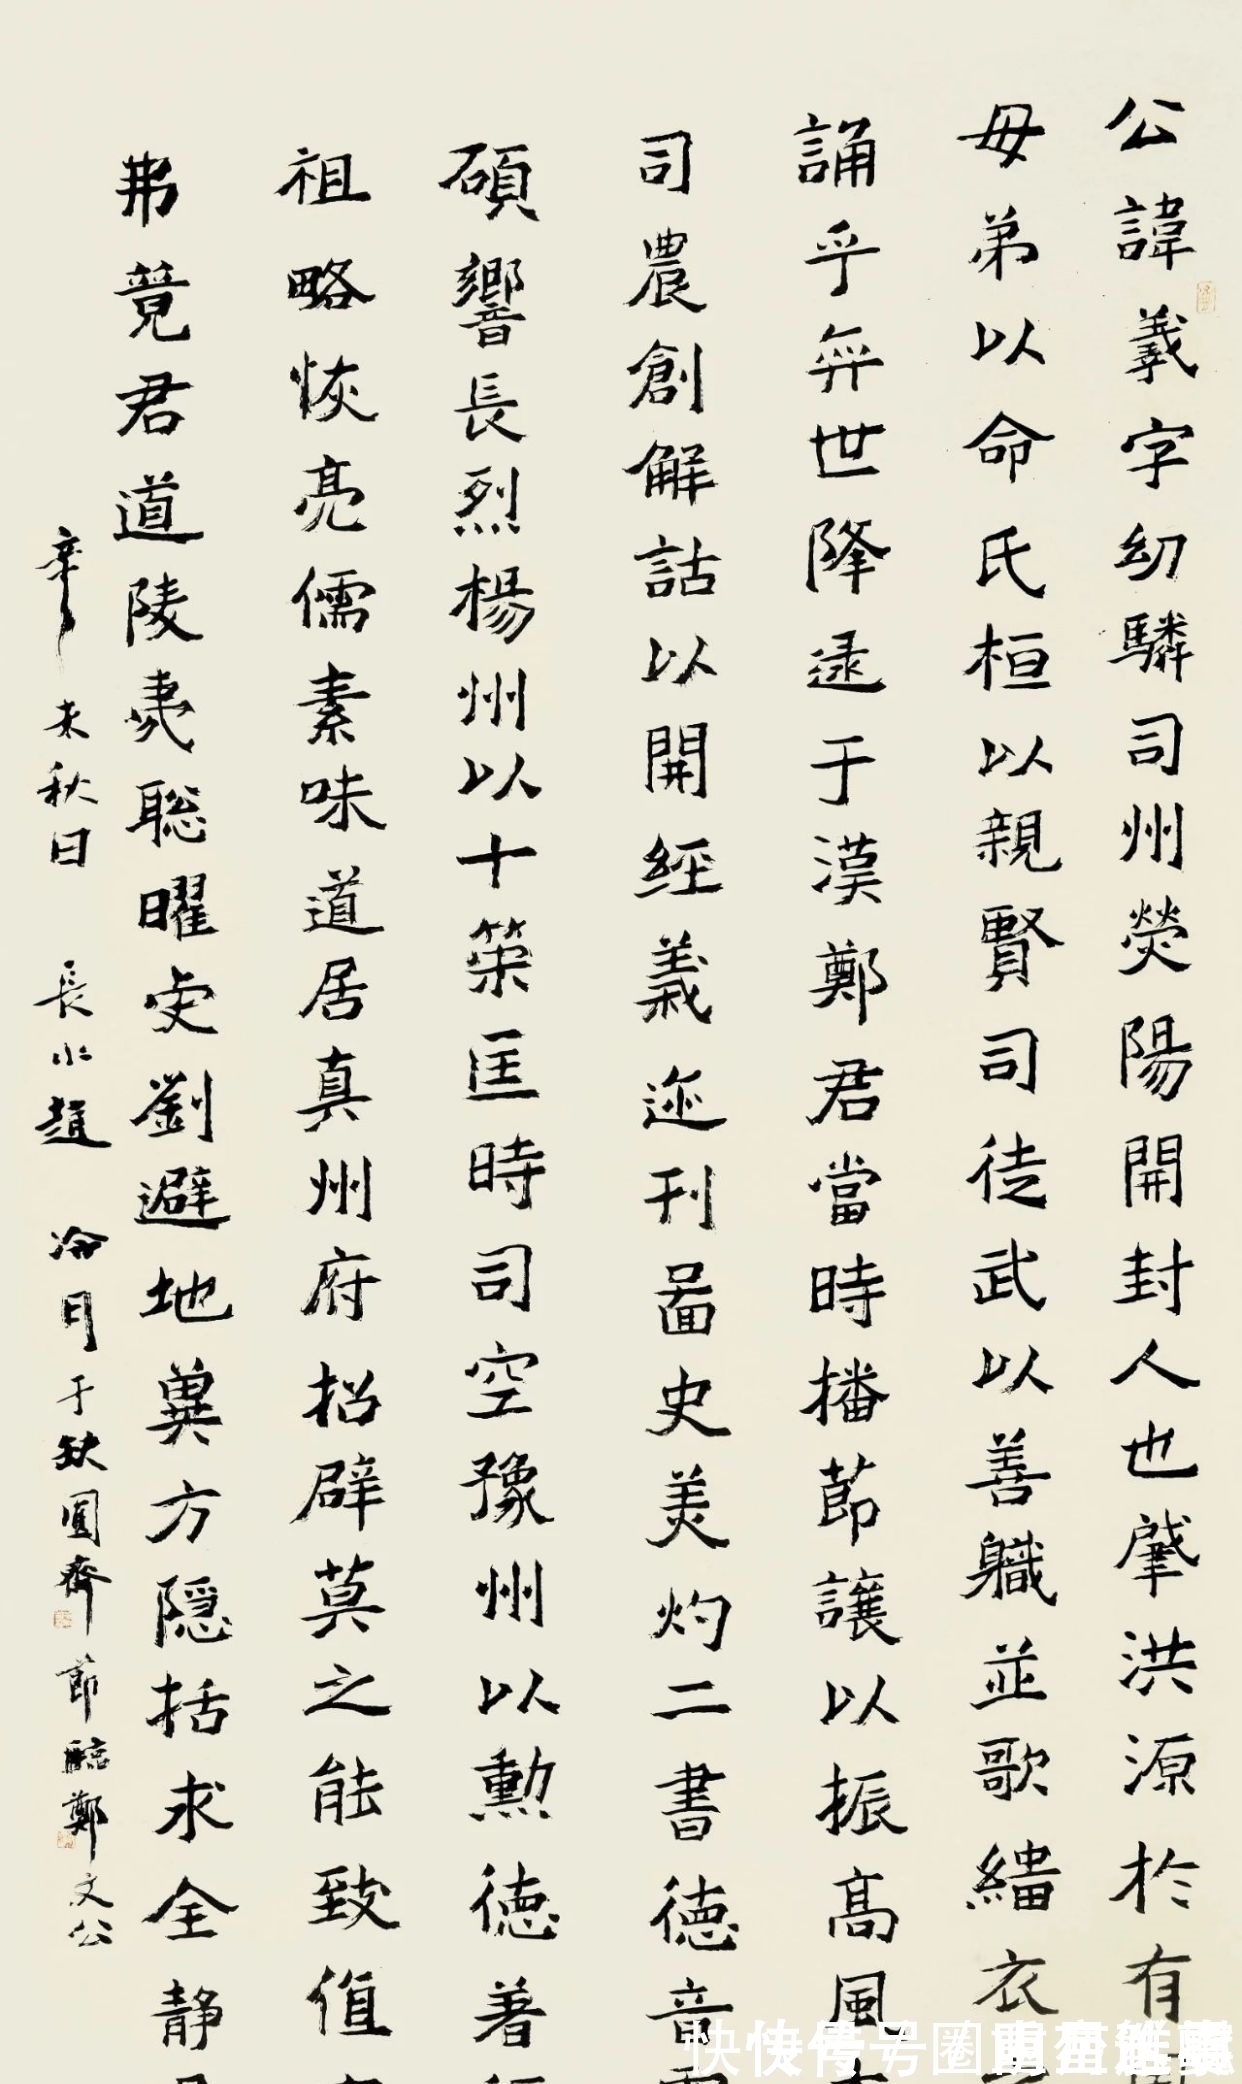 公諱羲字幼驎司州熒陽開封人也肇洪源於有
母弟以命氏桓以親賢司徒武以善職並歌緇衣
誦乎奕世降逯于漢鄭君當時播節讓以振高風
司農創解詁以開經義迹刊圖史美灼二書德音
碩響長烈楊州以十策匡時司空豫州以勳德著
祖略恢亮儒素味道居真州府招辟莫之能致值
弗竟君道陵夷聦曜虔劉避地兾方隱括求全靜
辛未秋日 長水趙 冷月于缺圓齋節臨鄭文公
快传号